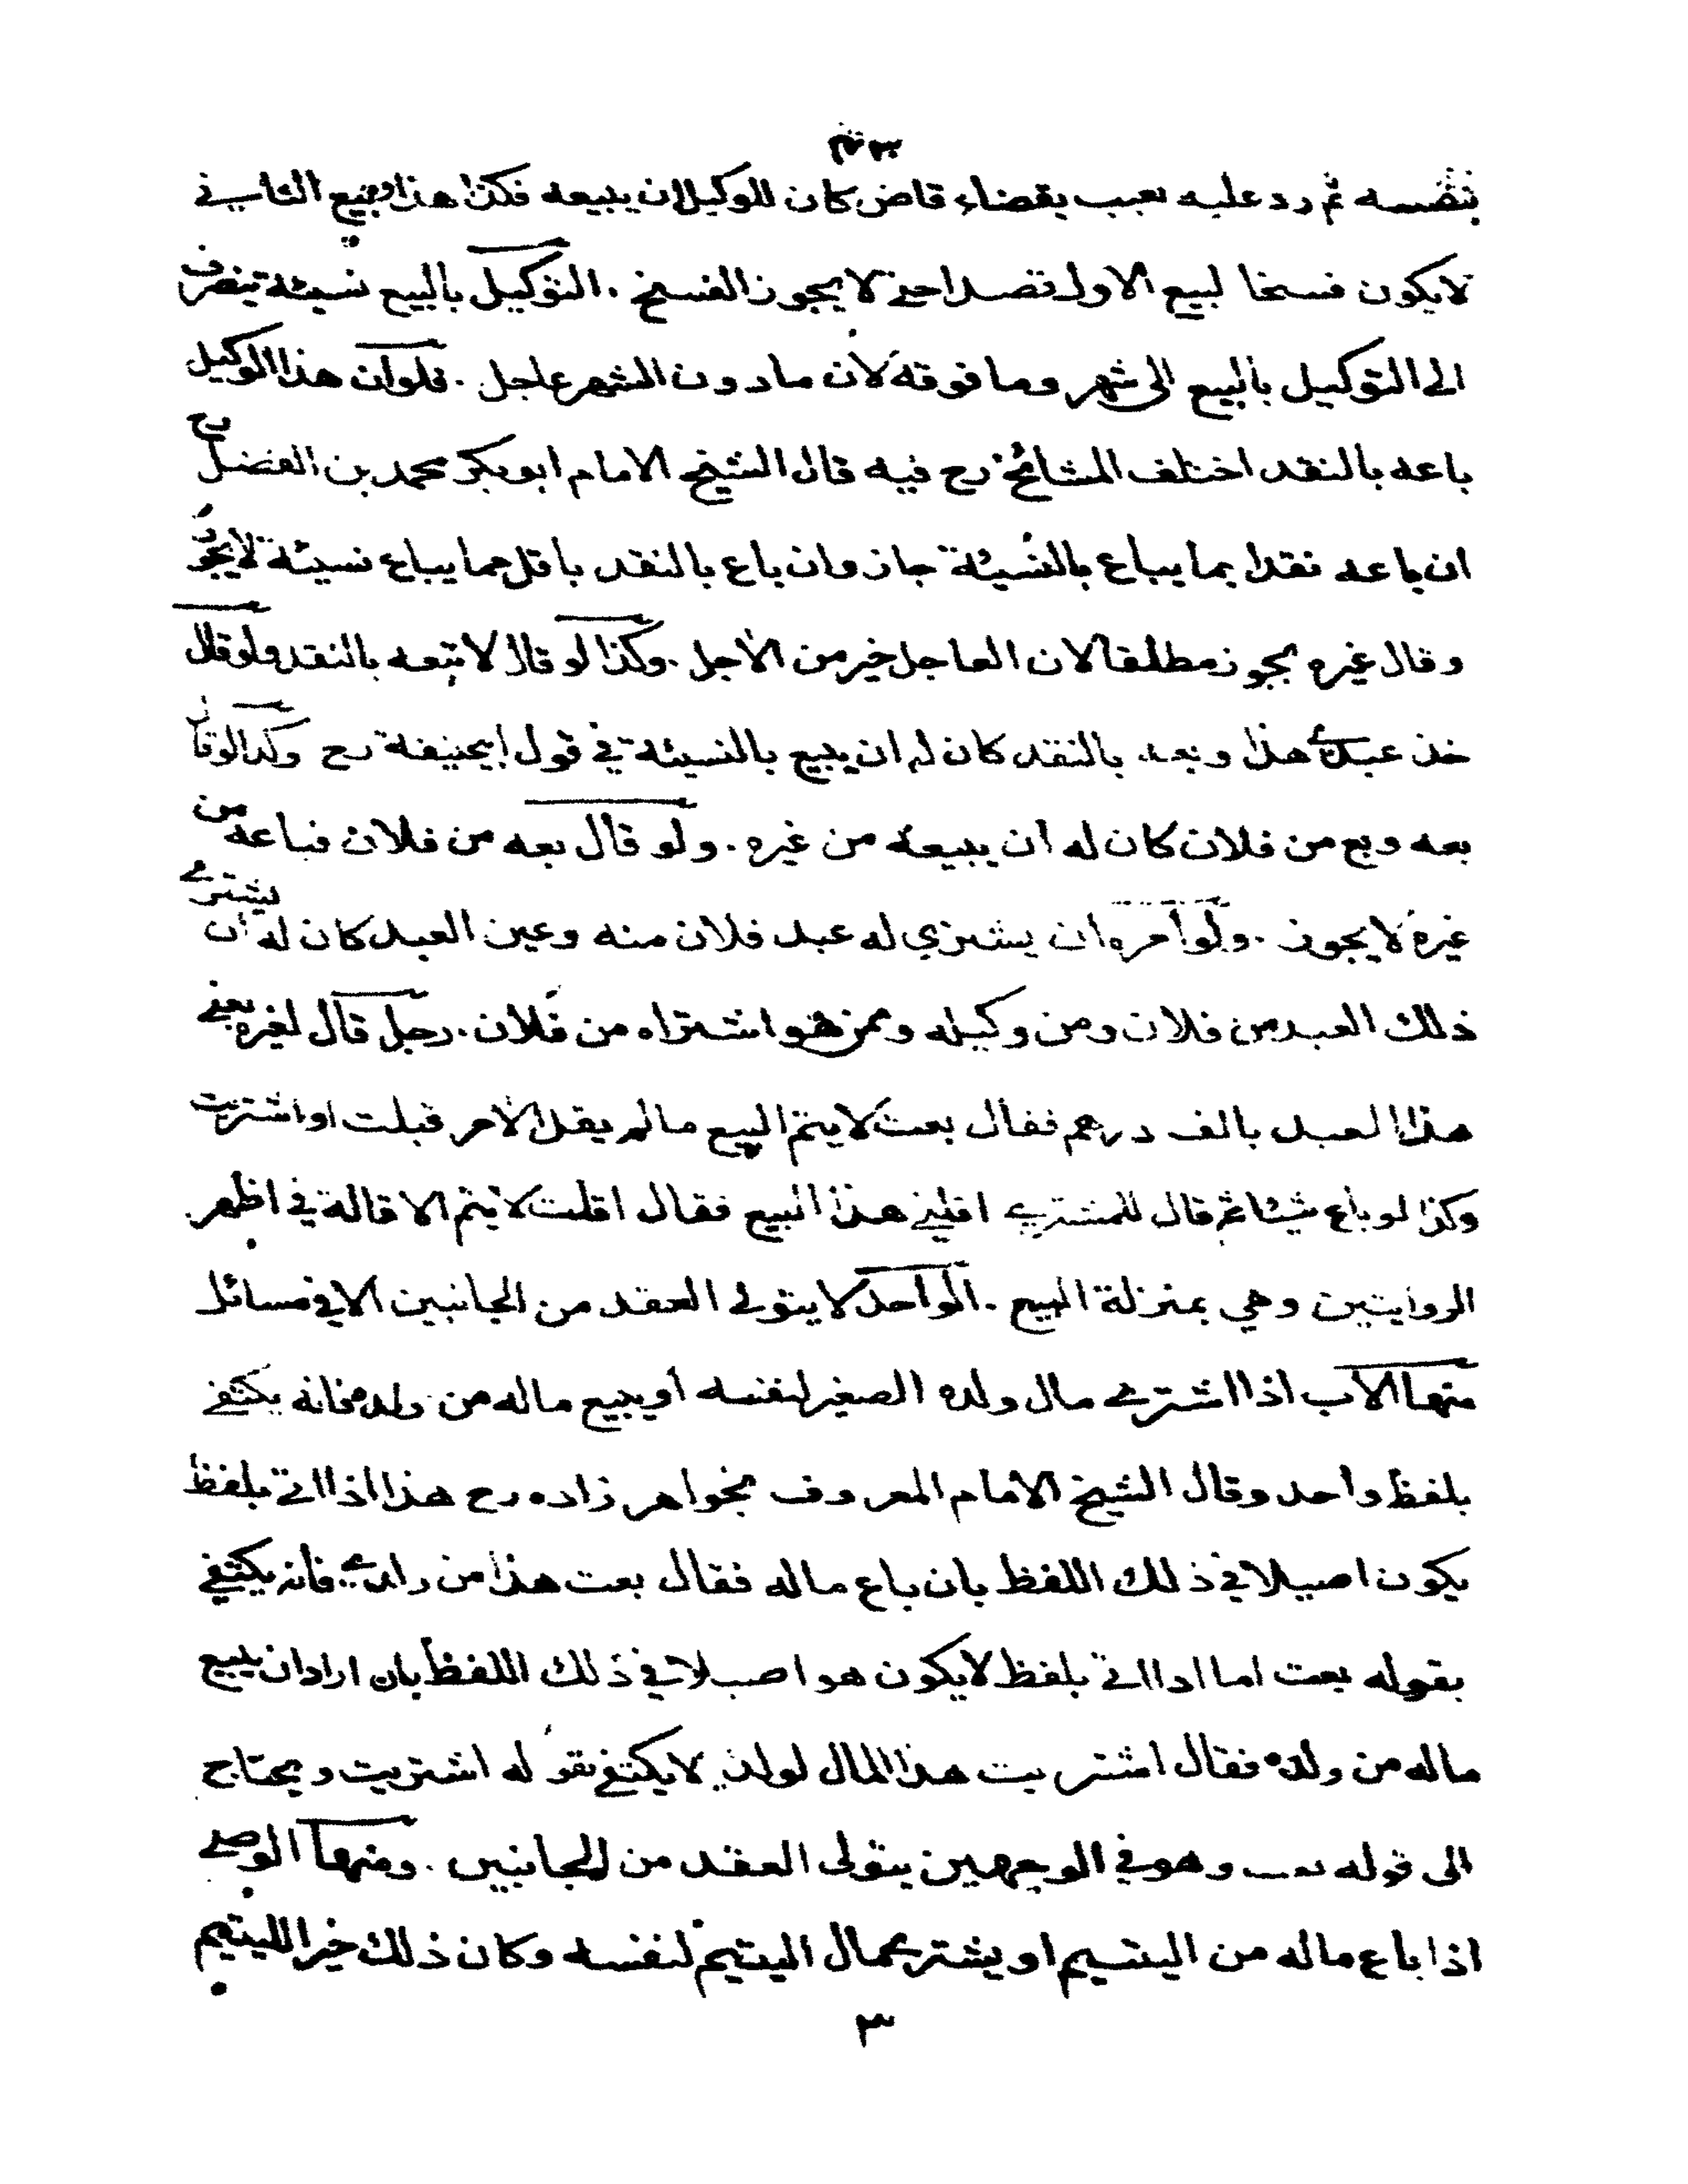 بنفسه ثم رد عليه بعيب بقضاء قاض كان للوكيل ان يبيعه فكذا هذا وبيع الثاني
لا يكون فسخا لبيع الاول قصدا حتى لا يجوز الفسخ . التوكيل بالبيع نسيئة ينصرف
الى التوكيل بالبيع الى شهر وما فوقه لان ما دون الشهر عاجل . فلو ان هذا الوكيل
باعه بالنقد اختلف المشائخ رح فيه قال الشيخ الامام ابو بكر محمد بن الفضل رح
ان باعه نقدا بما يباع بالنسيئة جاز وان باع بالنقد باقل مما يباع نسيئة لا يجوز
وقال غيره يجوز مطلقا لان العاجل خير من الآجل . وكذا لو قال لا تبعه بالنقد ولو قال
خذ عبدي هذا وبعه بالنقد كان له ان يبيع بالنسيئة في قول ابيحنيفة رح وكذا لو قال
بعه وبع من فلان كان له ان يبيعه من غيره . ولو قال بعه من فلان فباعه من
غيره لا يجوز . ولو امره ان يشتري له عبد فلان منه وعين العبد كان له ان يشتري
ذلك العبد من فلان ومن وكيله وممن هو اشتراه من فلان . رجل قال لغيره بعني
هذا العبد بالف درهم فقال بعت لا يتم البيع ما لم يقل الآمر قبلت او اشتريت
وكذا لو باع شيئا ثم قال للمشتري اقلني هذا البيع فقال اقلت لا يتم الاقالة في اظهر
الروايتين وهي بمنزلة البيع . الواحد لا يتولى العقد من الجانبين الا في مسائل
منها الاب اذا اشترى مال ولده الصغير لنفسه او يبيع ماله من ولده فانه يكتفي
بلفظ واحد وقال الشيخ الامام المعروف بخواهر زاده رح هذا اذا اتى بلفظ
يكون اصيلا في ذلك اللفظ بان باع ماله فقال بعت هذا من ولدي فانه يكتفي
بقوله بعت اما اذا اتى بلفظ لا يكون هو اصيلا في ذلك اللفظ بان اراد ان يبيع
ماله من ولده فقال اشتريت هذا المال لولدي لا يكتفي بقوله اشتريت ويحتاج
الى قوله بعت وهو في الوجهين يتولى العقد من الجانبين . ومنها الوصي
اذا باع ماله من اليتيم او يشتري مال اليتيم لنفسه وكان ذلك خيرا لليتيم
٣